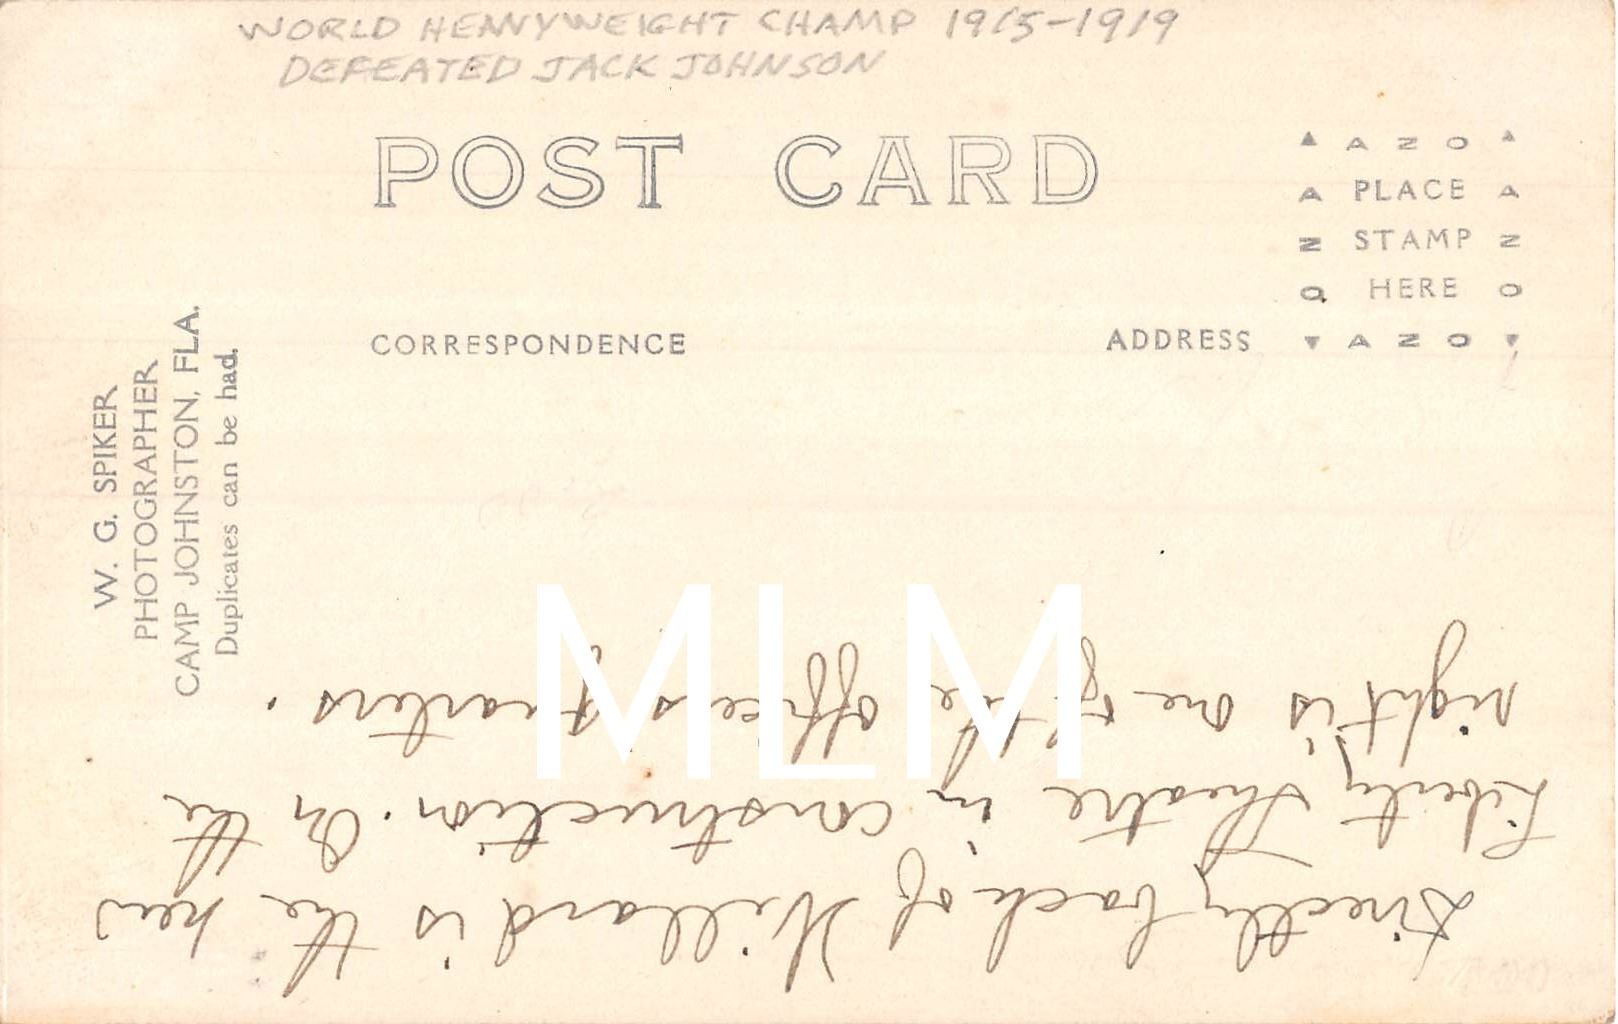 WORLD HEAVYWEIGHT CHAMP 1915-1919
DEFEATED JACK JOHNSON
POST CARD
▲ AZO ▲
A PLACE A
N STAMP Z
O HERE O
▼ AZO ▼
CORRESPONDENCE
ADDRESS
W. G. SPIKER
PHOTOGRAPHER
CAMP JOHNSTON, FLA.
Duplicates can be had.
MLM
Directly back of Willard is the new
Liberty Theatre in construction. On the
right is one of the officers quarters.